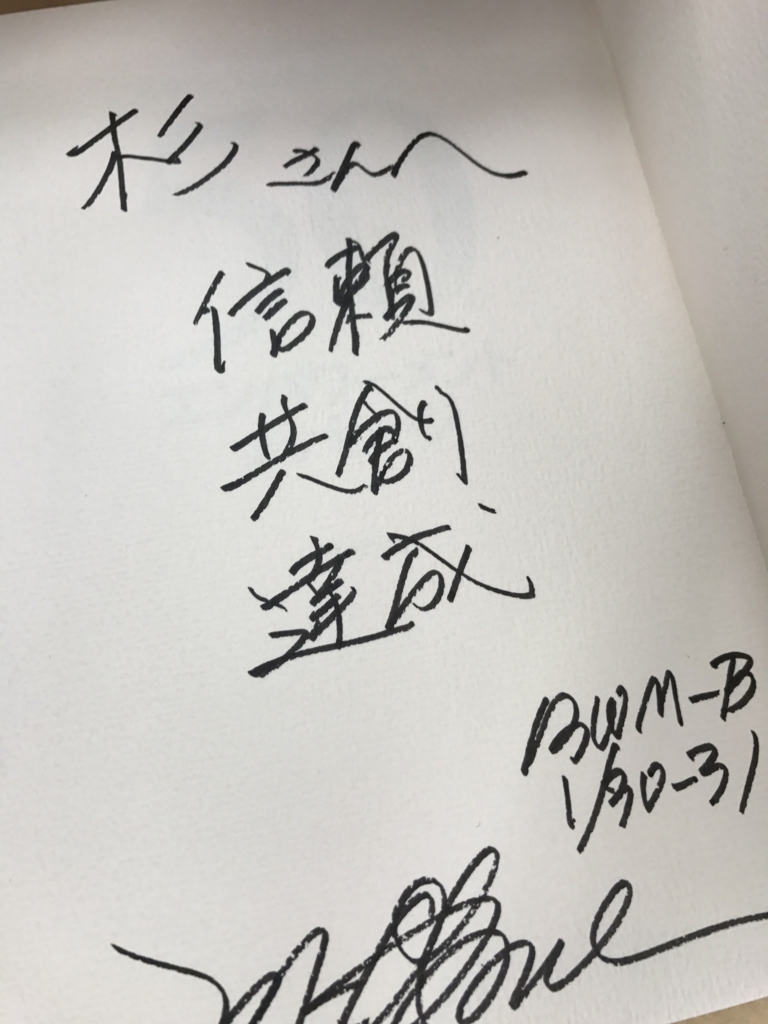 杉さんへ
信頼
共創
達成
BWM-B
1/30-31